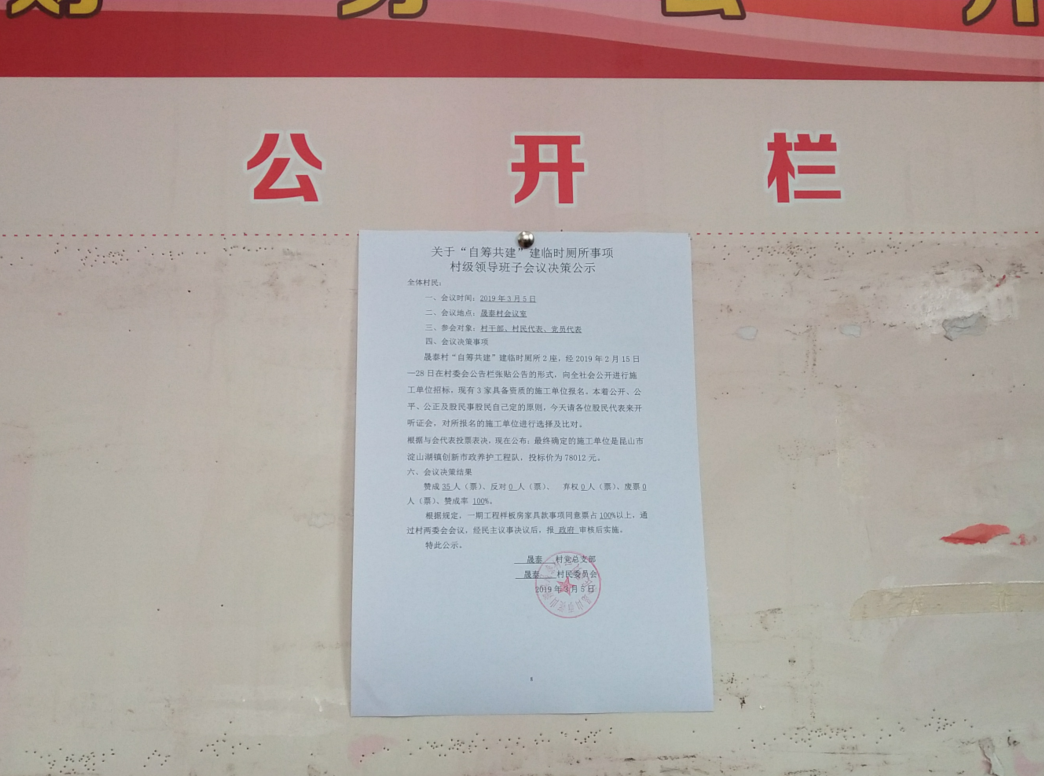 财务公开
公开栏
关于“自筹共建”建临时厕所事项
村级领导班子会议决策公示
全体村民：
一、会议时间：2019年3月5日
二、会议地点：晟泰村会议室
三、参会对象：村干部、村民代表、党员代表
四、会议决策事项
晟泰村“自筹共建”建临时厕所2座，经2019年2月15日
—28日在村委会公告栏张贴公告的形式，向全社会公开进行施
工单位招标。现有3家具备资质的施工单位报名。本着公开、公
平、公正及股民事股民自己定的原则，今天请各位股民代表来开
听证会，对所报名的施工单位进行选择及比对。
根据与会代表投票表决，现在公布：最终确定的施工单位是昆山市
淀山湖镇创新市政养护工程队，投标价为78012元。
六、会议决策结果
赞成35人（票）、反对0人（票）、 弃权0人（票）、废票0
人（票）、赞成率 100%。
根据规定，一期工程样板房家具款事项同意票占100%以上，通
过村两委会会议，经民主议事决议后，报 政府 审核后实施。
特此公示。
晟泰 村党总支部
晟泰 村民委员会
2019年3月5日